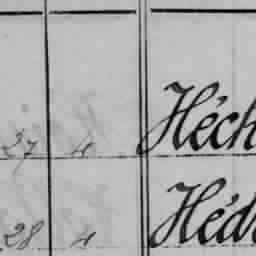 27 4 Héch
28 4 Héd